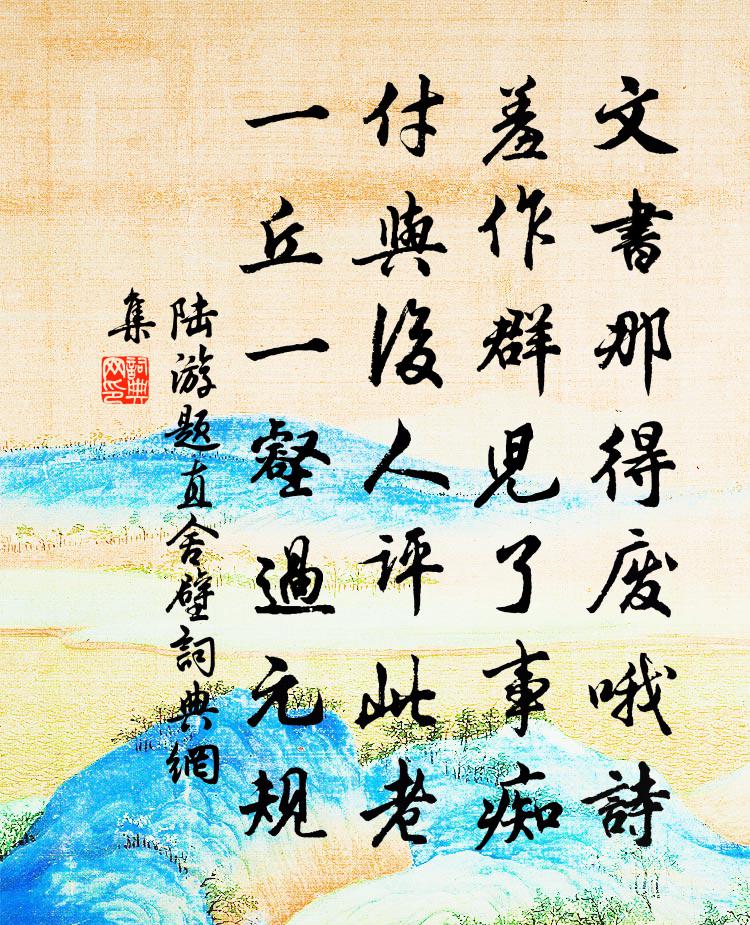 文書那得废哦詩
羞作群兒了事痴
付與後人評此老
一丘一壑過元规
陆游题直舍壁詞典網
集
詞典
网印